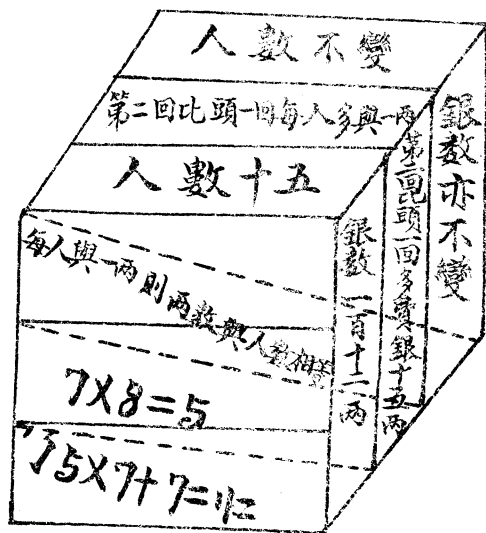 人數不變
第二回比頭一回每人多與一兩
人數十五
每人與一兩則兩數與人數相等
7X8=5
15X7+7=112
銀數一百十二兩
第二回比頭一回多費銀十五兩
銀數亦不變